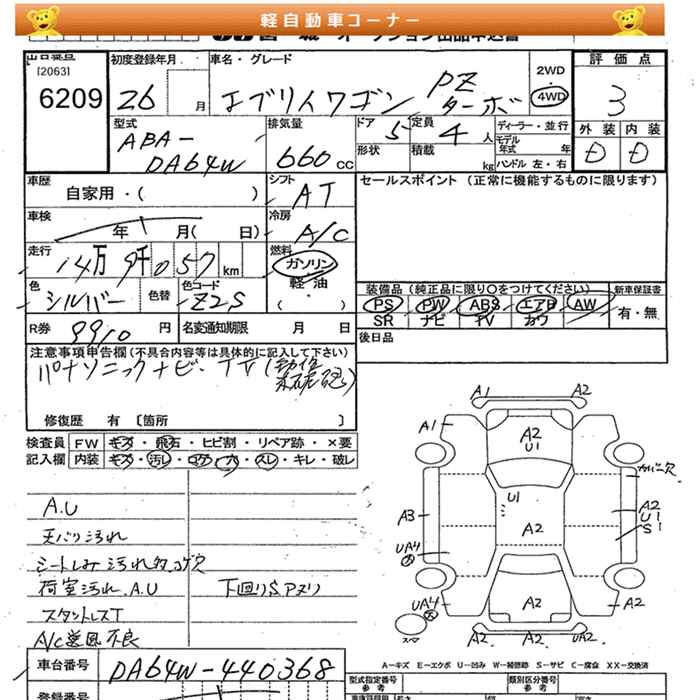 軽自動車コーナー
[2063]
6209
初度登録年月
26
月
車名・グレード
エブリイワゴン PZ ターボ
2WD
4WD
評価点
3
外装 内装
D D
型式
ABA-
DA64W
排気量
660 CC
ドア 5
定員 4 人
形状
積載 kg
ディーラー・並行
モデル年式 年
ハンドル 左・右
車歴
自家用・( )
シフト
AT
セールスポイント (正常に機能するものに限ります)
車検
年 月( 日)
冷房
A/C
走行
14万9千057km
燃料
ガソリン
軽油
・( )
色
シルバー
色替
色コード
Z2S
装備品(純正品に限り○をつけてください)
新車保証書
PS PW ABS エアB AW
SR ナビ TV カワ
有・無
R券 9910 円
名変通知期限 月 日
後日品
注意事項申告欄(不具合内容等は具体的に記入して下さい)
パナソニックナビ、TV(動作未確認)
修復歴 有 [箇所 ]
検査員 FW キズ・飛石・ヒビ割・リペア跡・×要
記入欄 内装 キズ・汚れ・コゲ・穴・スレ・キレ・破レ
A.U
天バリ汚れ
シートしみ 汚れ多、コゲ穴
荷室汚れ.A.U
下回りS.アヌリ
スタットレスT
A/C送風不良
A1 A2
A1
A2
U1
カバー欠
U1
A2
U1
S1
A3
A2
UA4
UA4
スペア
A2
A2
A2 A2 UA2
A-キズ E-エクボ U-凹み W-補修跡 S-サビ C-腐食 XX-交換済
車台番号
DA64W-440368
型式指定番号
参考
類別区分番号
参考
登録番号